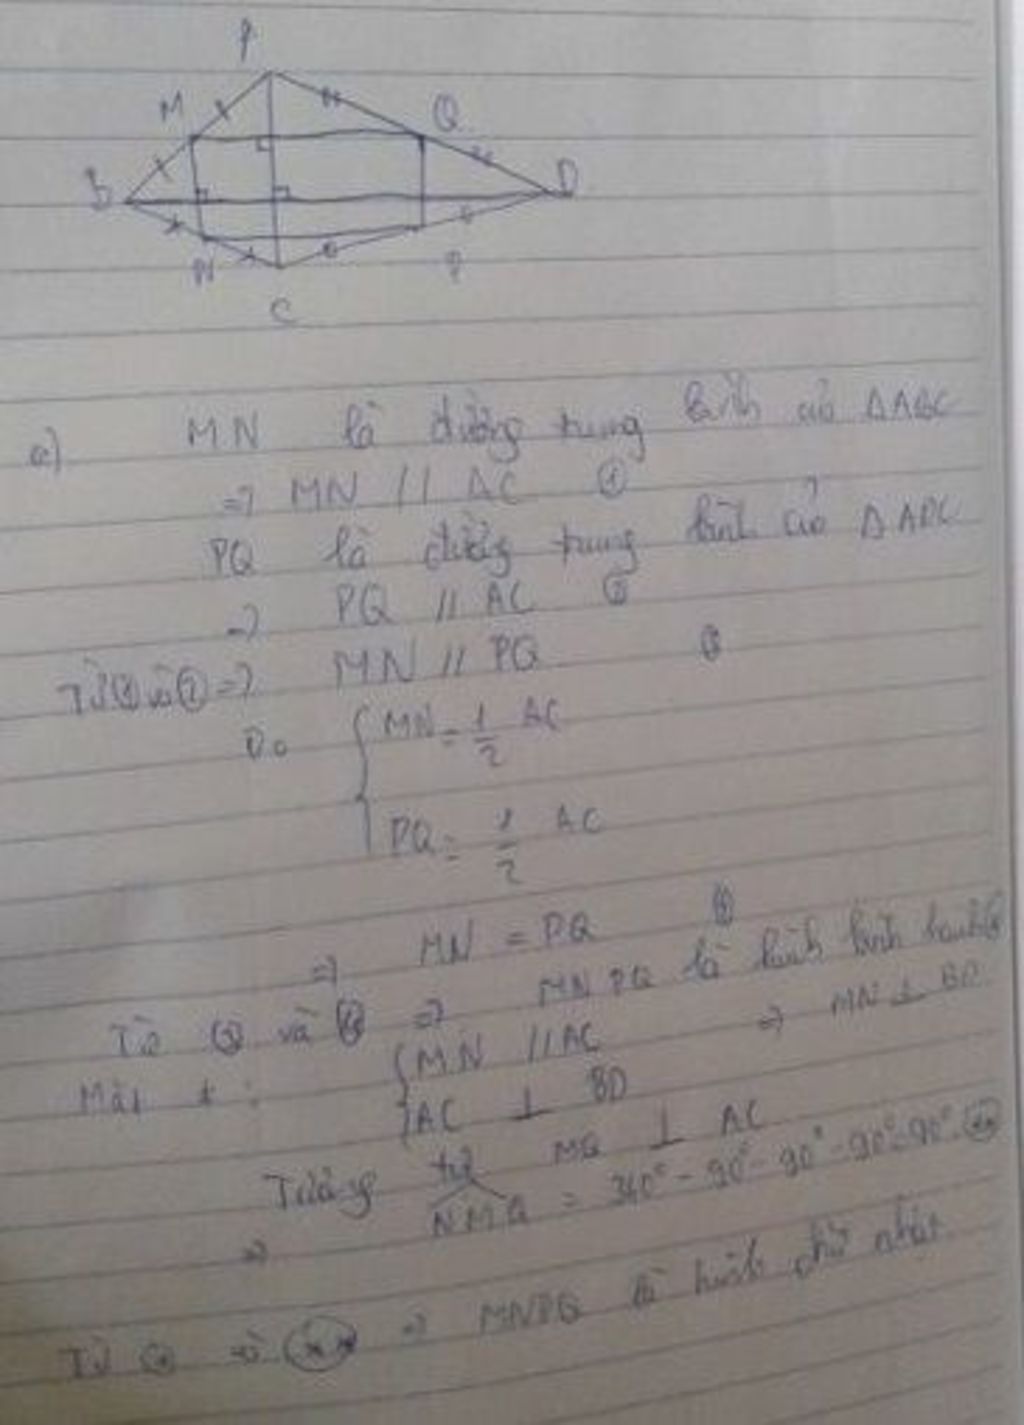 A
M
Q
B
D
N
P
C
a) MN là đường trung bình của ΔABC
=> MN // AC ①
PQ là đường trung bình của ΔADC
=> PQ // AC ②
Từ ① và ② => MN // PQ ③
Do { MN = 1/2 AC
PQ = 1/2 AC
=> MN = PQ ④
Từ ③ và ④ => MNPQ là hình bình hành (*)
Mặt # : { MN // AC => MN ⊥ BD
AC ⊥ BD
Tương tự MQ ⊥ AC
=> NMQ = 360° - 90° - 90° - 90° = 90° (**)
Từ (*) và (**) => MNPQ là hình chữ nhật